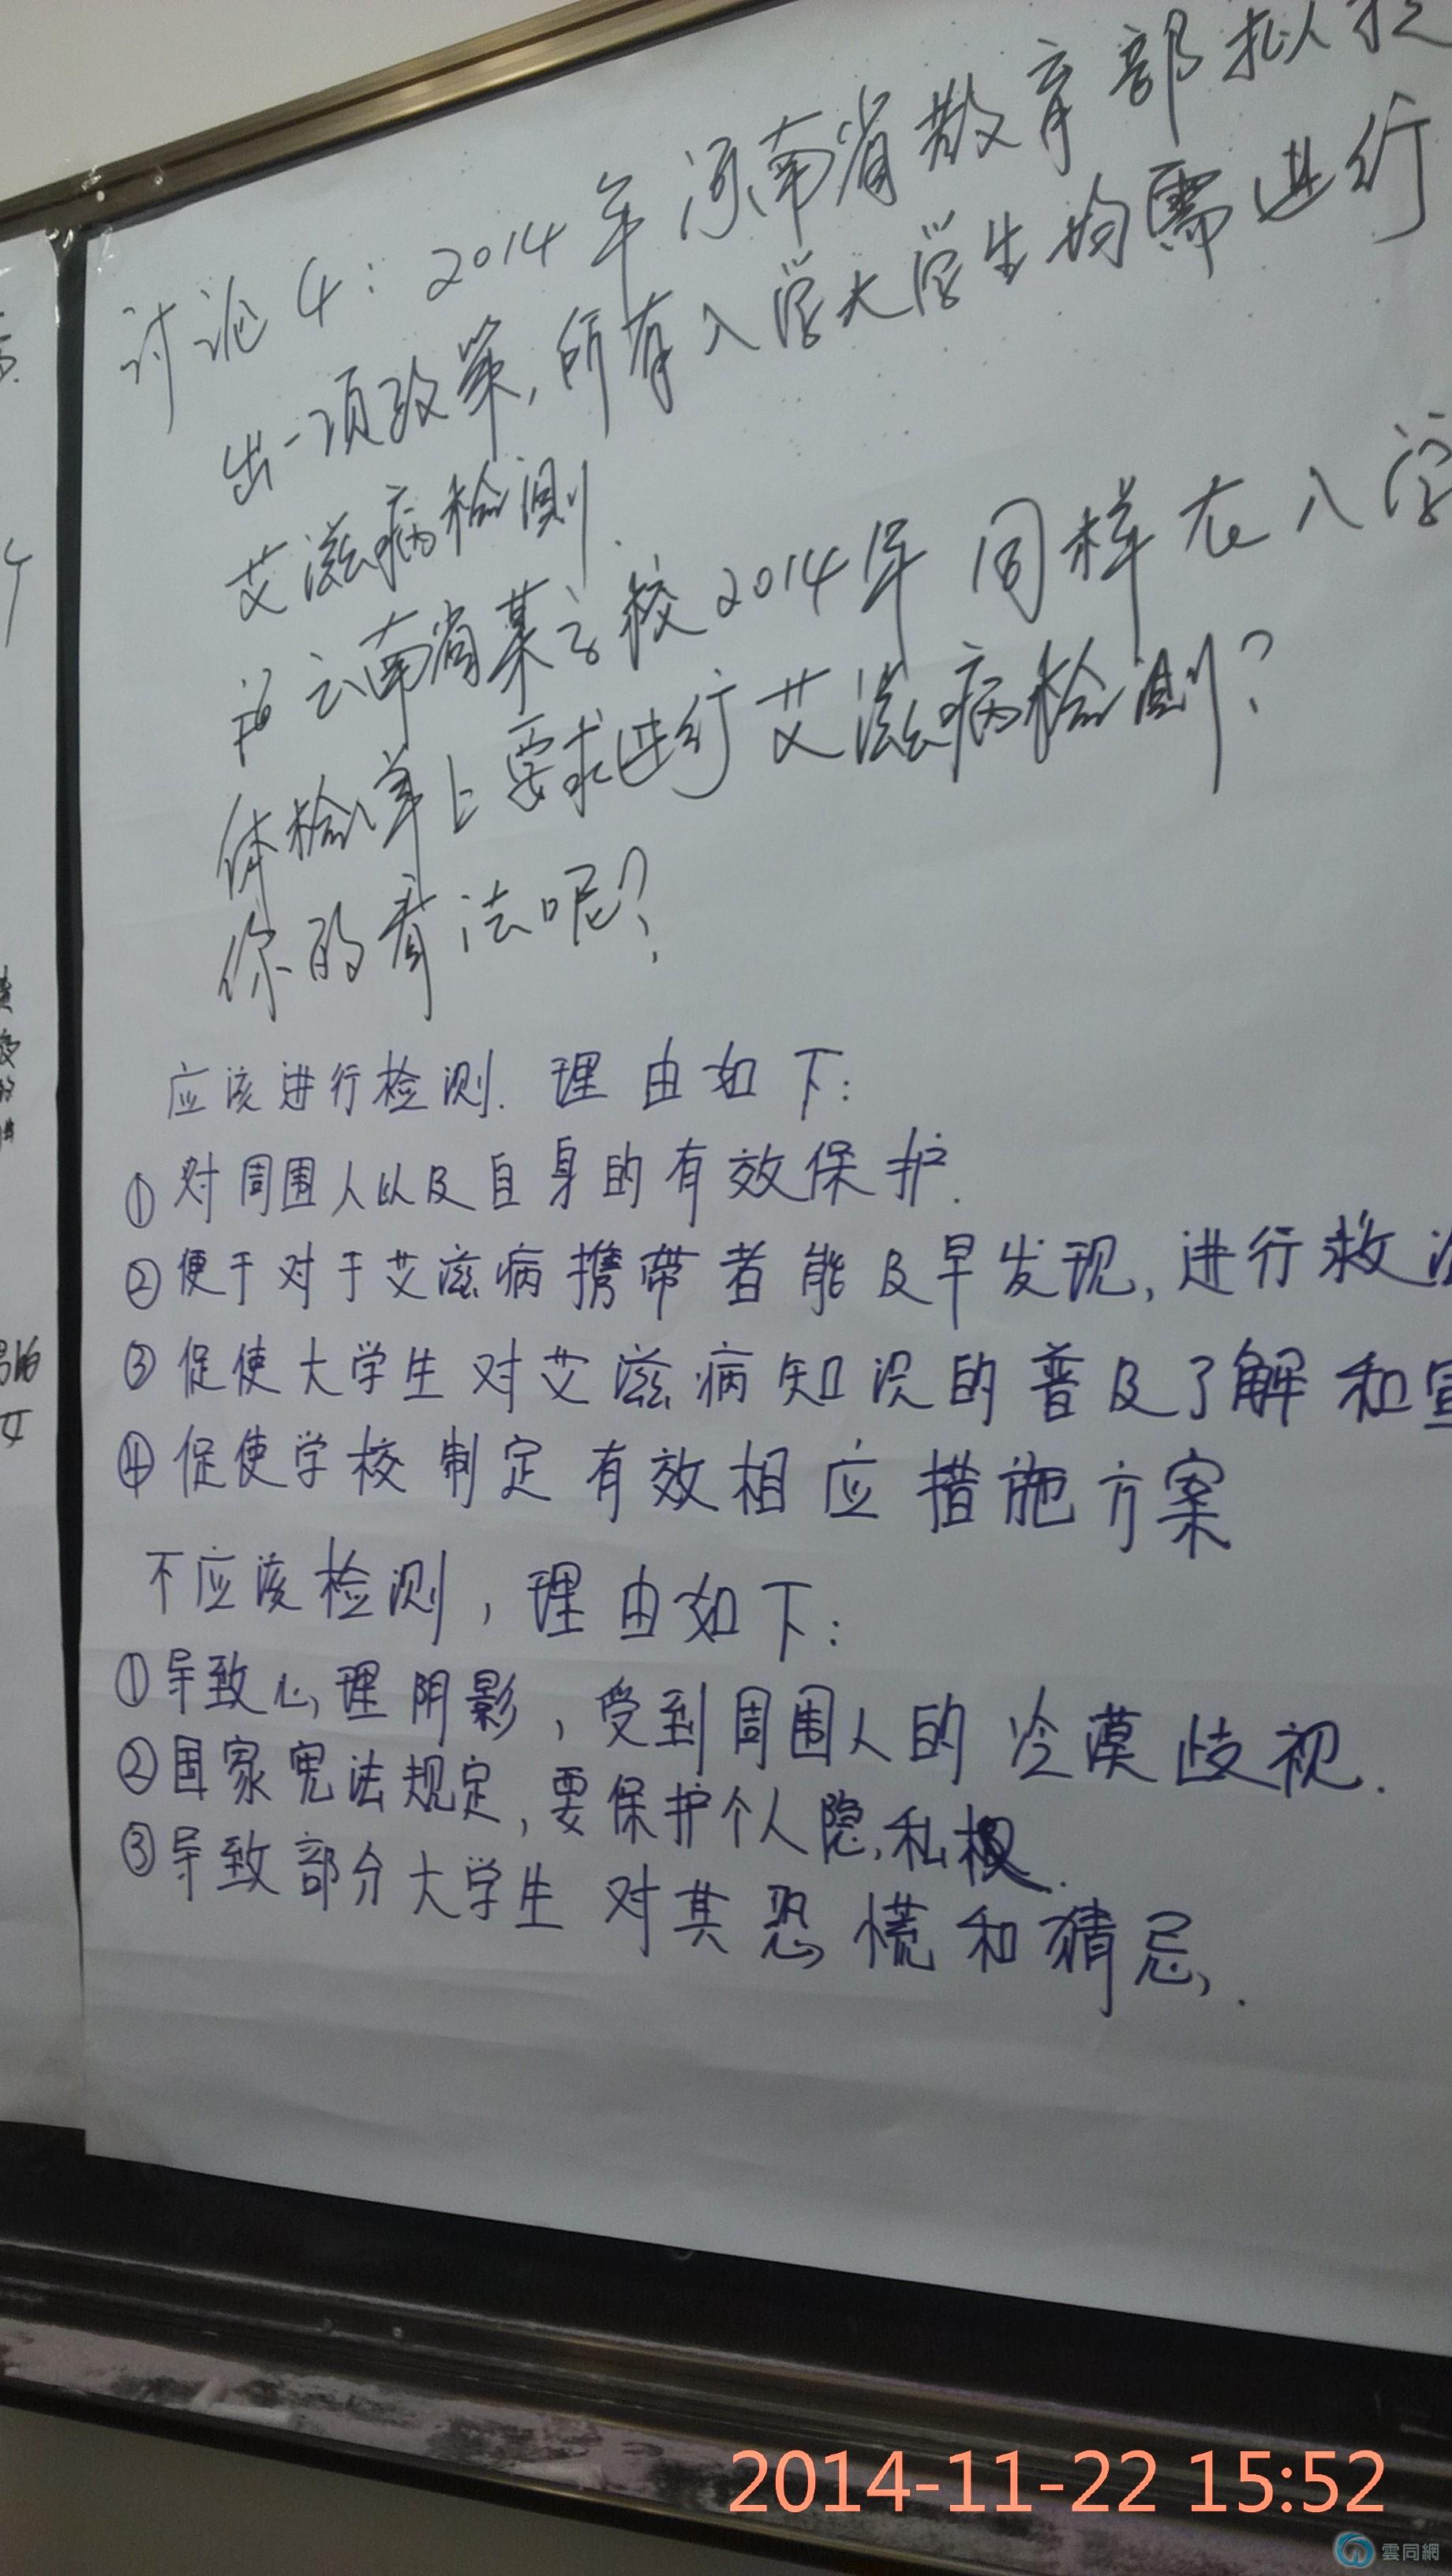 讨论4：2014年河南省教育部拟提
出一项政策，所有入学大学生均需进行
艾滋病检测.
云南省某学校2014年同样在入学
体检单上要求进行艾滋病检测？
你的看法呢？
应该进行检测. 理由如下：
①对周围人以及自身的有效保护.
②便于对于艾滋病携带者能及早发现，进行救治
③促使大学生对艾滋病知识的普及了解和宣
④促使学校制定有效相应措施方案
不应该检测，理由如下：
①导致心理阴影，受到周围人的冷漠歧视.
②国家宪法规定，要保护个人隐私权.
③导致部分大学生对其恐慌和猜忌.
2014-11-22 15:52
雲同網